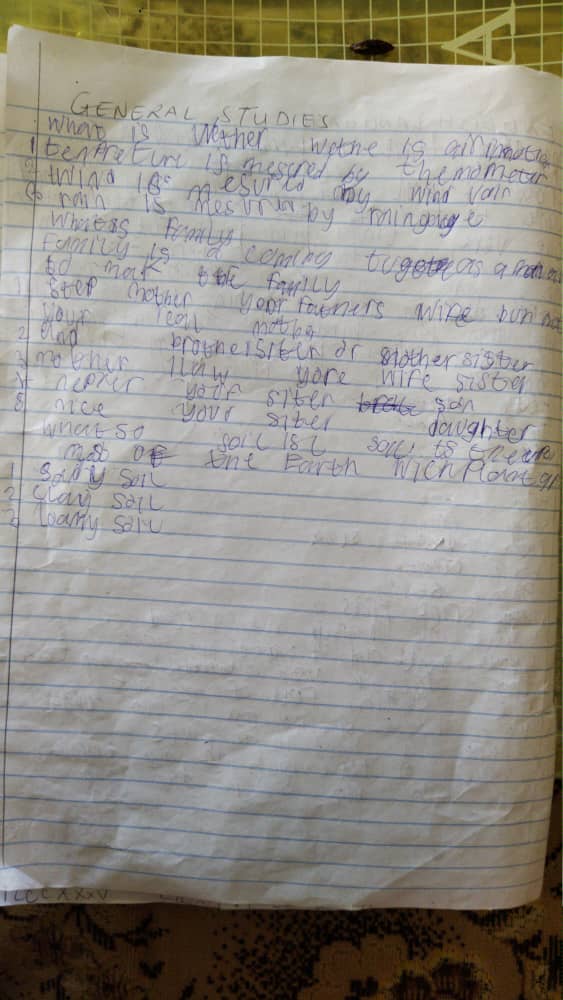 GENERAL STUDIES
what is wether wethe is air in motion
1 temprature is mesered by themometer
2 wind is mesured by wind vair
3 rain is mesured by raingauge
what is family
Family is a coming together as a
to mak family
1 step mother your fathers wife bun not
your reall mother
2 and brother sister or mother sister
3 mother ilaw yore wife sister
4 nepher your siter son
5 nice your siter daughter
what so soil is l soil is the
most of the Earth wich plant
1 sandy soil
2 clay soil
3 loamy soil
A